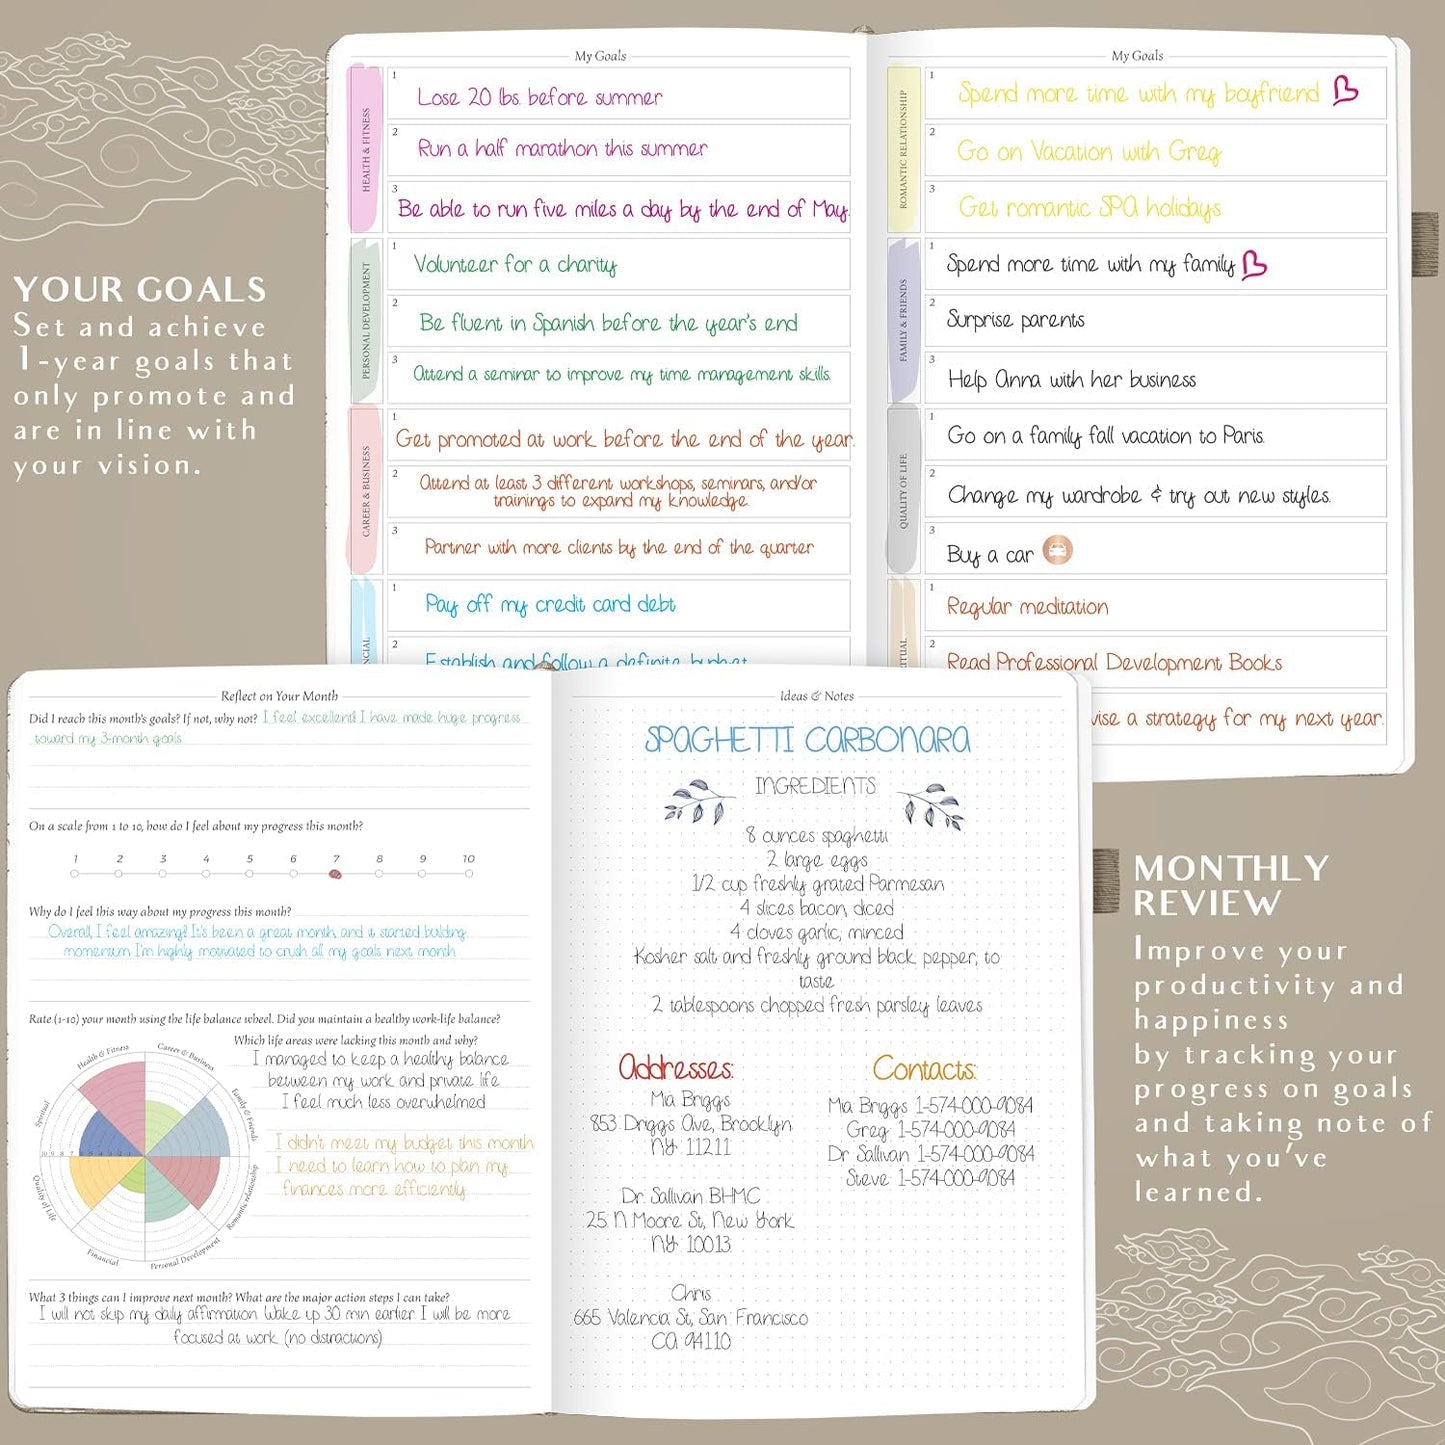 YOUR GOALS
Set and achieve
1-year goals that
only promote and
are in line with
your vision.
My Goals
HEALTH & FITNESS
1
Lose 20 lbs. before summer
2
Run a half marathon this summer
3
Be able to run five miles a day by the end of May.
PERSONAL DEVELOPMENT
1
Volunteer for a charity
2
Be fluent in Spanish before the year's end
3
Attend a seminar to improve my time management skills.
CAREER & BUSINESS
1
Get promoted at work before the end of the year.
2
Attend at least 3 different workshops, seminars, and/or
trainings to expand my knowledge.
3
Partner with more clients by the end of the quarter
1
Pay off my credit card debt
2
Establish and follow a definite budget
My Goals
ROMANTIC RELATIONSHIP
1
Spend more time with my boyfriend
2
Go on Vacation with Greg
3
Get romantic SPA holidays
FAMILY & FRIENDS
1
Spend more time with my family
2
Surprise parents
3
Help Anna with her business
QUALITY OF LIFE
1
Go on a family fall vacation to Paris.
2
Change my wardrobe & try out new styles.
3
Buy a car
1
Regular meditation
2
Read Professional Development Books
vise a strategy for my next year.
Reflect on Your Month
Did I reach this month's goals? If not, why not? I feel excellent! I have made huge progress
toward my 3-month goals
On a scale from 1 to 10, how do I feel about my progress this month?
1 2 3 4 5 6 7 8 9 10
Why do I feel this way about my progress this month?
Overall, I feel amazing! It's been a great month, and it started building
momentum. I'm highly motivated to crush all my goals next month.
Rate (1-10) your month using the life balance wheel. Did you maintain a healthy work-life balance?
Which life areas were lacking this month and why?
I managed to keep a healthy balance
between my work and private life
I feel much less overwhelmed
I didn't meet my budget this month
I need to learn how to plan my
finances more efficiently.
Health & Fitness
Career & Business
Family & Friends
Romantic relationship
Personal Development
Financial
Quality of Life
Spiritual
What 3 things can I improve next month? What are the major action steps I can take?
I will not skip my daily affirmation. Wake up 30 min earlier. I will be more
focused at work (no distractions)
Ideas & Notes
SPAGHETTI CARBONARA
INGREDIENTS
8 ounces spaghetti
2 large eggs
1/2 cup freshly grated Parmesan
4 slices bacon, diced
4 cloves garlic, minced
Kosher salt and freshly ground black pepper, to
taste
2 tablespoons chopped fresh parsley leaves
Addresses:
Mia Briggs
853 Driggs Ave, Brooklyn
NY 11211
Dr. Sallivan BHMC
25 N Moore St, New York
NY 10013
Chris
665 Valencia St, San Francisco
CA 94110
Contacts:
Mia Briggs 1-574-000-9084
Greg 1-574-000-9084
Dr Sallivan 1-574-000-9084
Steve 1-574-000-9084
MONTHLY
REVIEW
Improve your
productivity and
happiness
by tracking your
progress on goals
and taking note of
what you've
learned.